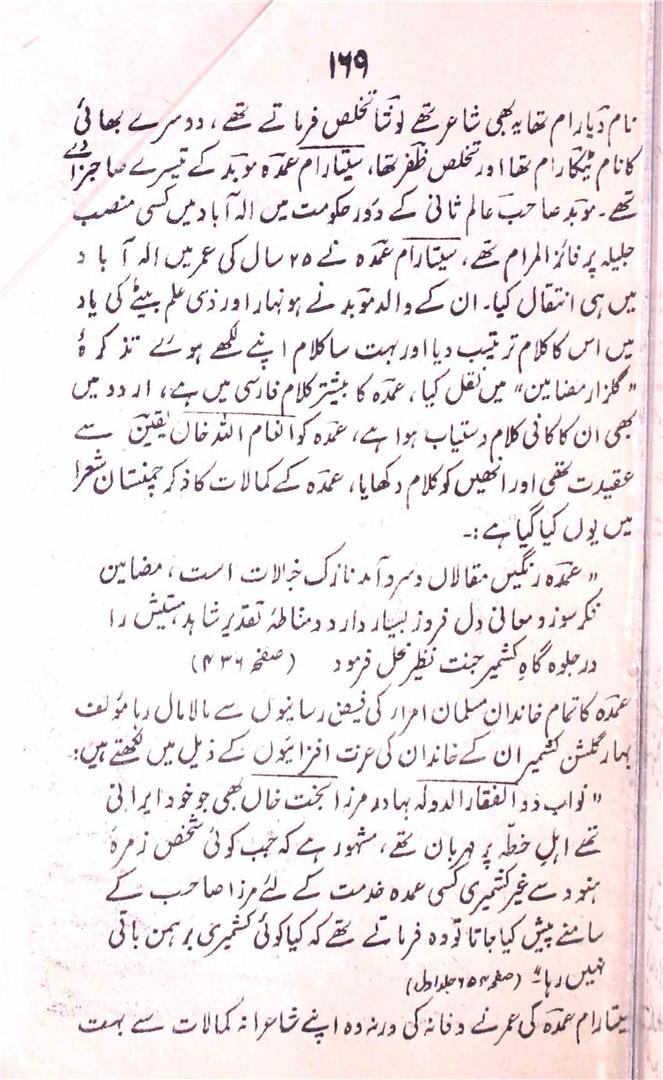 ۱۶۹
نام دیارام تھا یہ بھی شاعر تھے لونثا تخلص فرماتے تھے، دوسرے بھائی
کا نام ٹیکارام تھا اور تخلص ظفر تھا، سیتارام عمدہ موبد کے تیسرے صاحبزادے
تھے۔ موبد صاحب عالم ثانی کے دور حکومت میں الہ آباد میں کسی منصب
جلیلہ پر فائز المرام تھے، سیتارام عمدہ نے ۲۵ سال کی عمر میں الہ آباد
میں ہی انتقال کیا۔ ان کے والد موبد نے ہونہار اور ذی علم بیٹے کی یاد
میں اس کا کلام ترتیب دیا اور بہت سا کلام اپنے لکھے ہوئے تذکرۂ
"گلزار مضامین" میں نقل کیا، عمدہ کا بیشتر کلام فارسی میں ہے، اردو میں
بھی ان کا کافی کلام دستیاب ہوا ہے، عمدہ کو انعام اللہ خان یقین سے
عقیدت تھی اور انھیں کو کلام دکھایا، عمدہ کے کمالات کا ذکر چمنستان شعرا
میں یوں کیا گیا ہے:۔
"عمدہ رنگیں مقالاں و سرد آمد نازک خیالات است، مضامین
فکر سوز و معانی دل فروز بسیار دارد و مشاطۂ تقدیر شاہد ہستیش را
در جلوہ گاہ کشمیر جنت نظیر محل فرمود (صفحہ ۴۳۶)
عمدہ کا تمام خاندان مسلمان امراء کی فیض رسانیوں سے مالا مال رہا مؤلف
بہار گلشن کشمیر ان کے خاندان کی عزت افزائیوں کے ذیل میں لکھتے ہیں:
"نواب ذوالفقار الدولہ بہادر مرزا نجف خاں بھی جو خود ایرانی
تھے اہل خطّہ پر مہربان تھے، مشہور ہے کہ جب کوئی شخص زمرۂ
ہنود سے غیر کشمیری کسی عمدہ خدمت کے لئے مرزا صاحب کے
سامنے پیش کیا جاتا تو وہ فرماتے تھے کہ کیا کوئی کشمیری برہمن باقی
نہیں رہا" (صفحہ ۶۵۴ جلد اول)
سیتارام عمدہ کی عمر نے وفا نہ کی ورنہ وہ اپنے شاعرانہ کمالات سے بہت